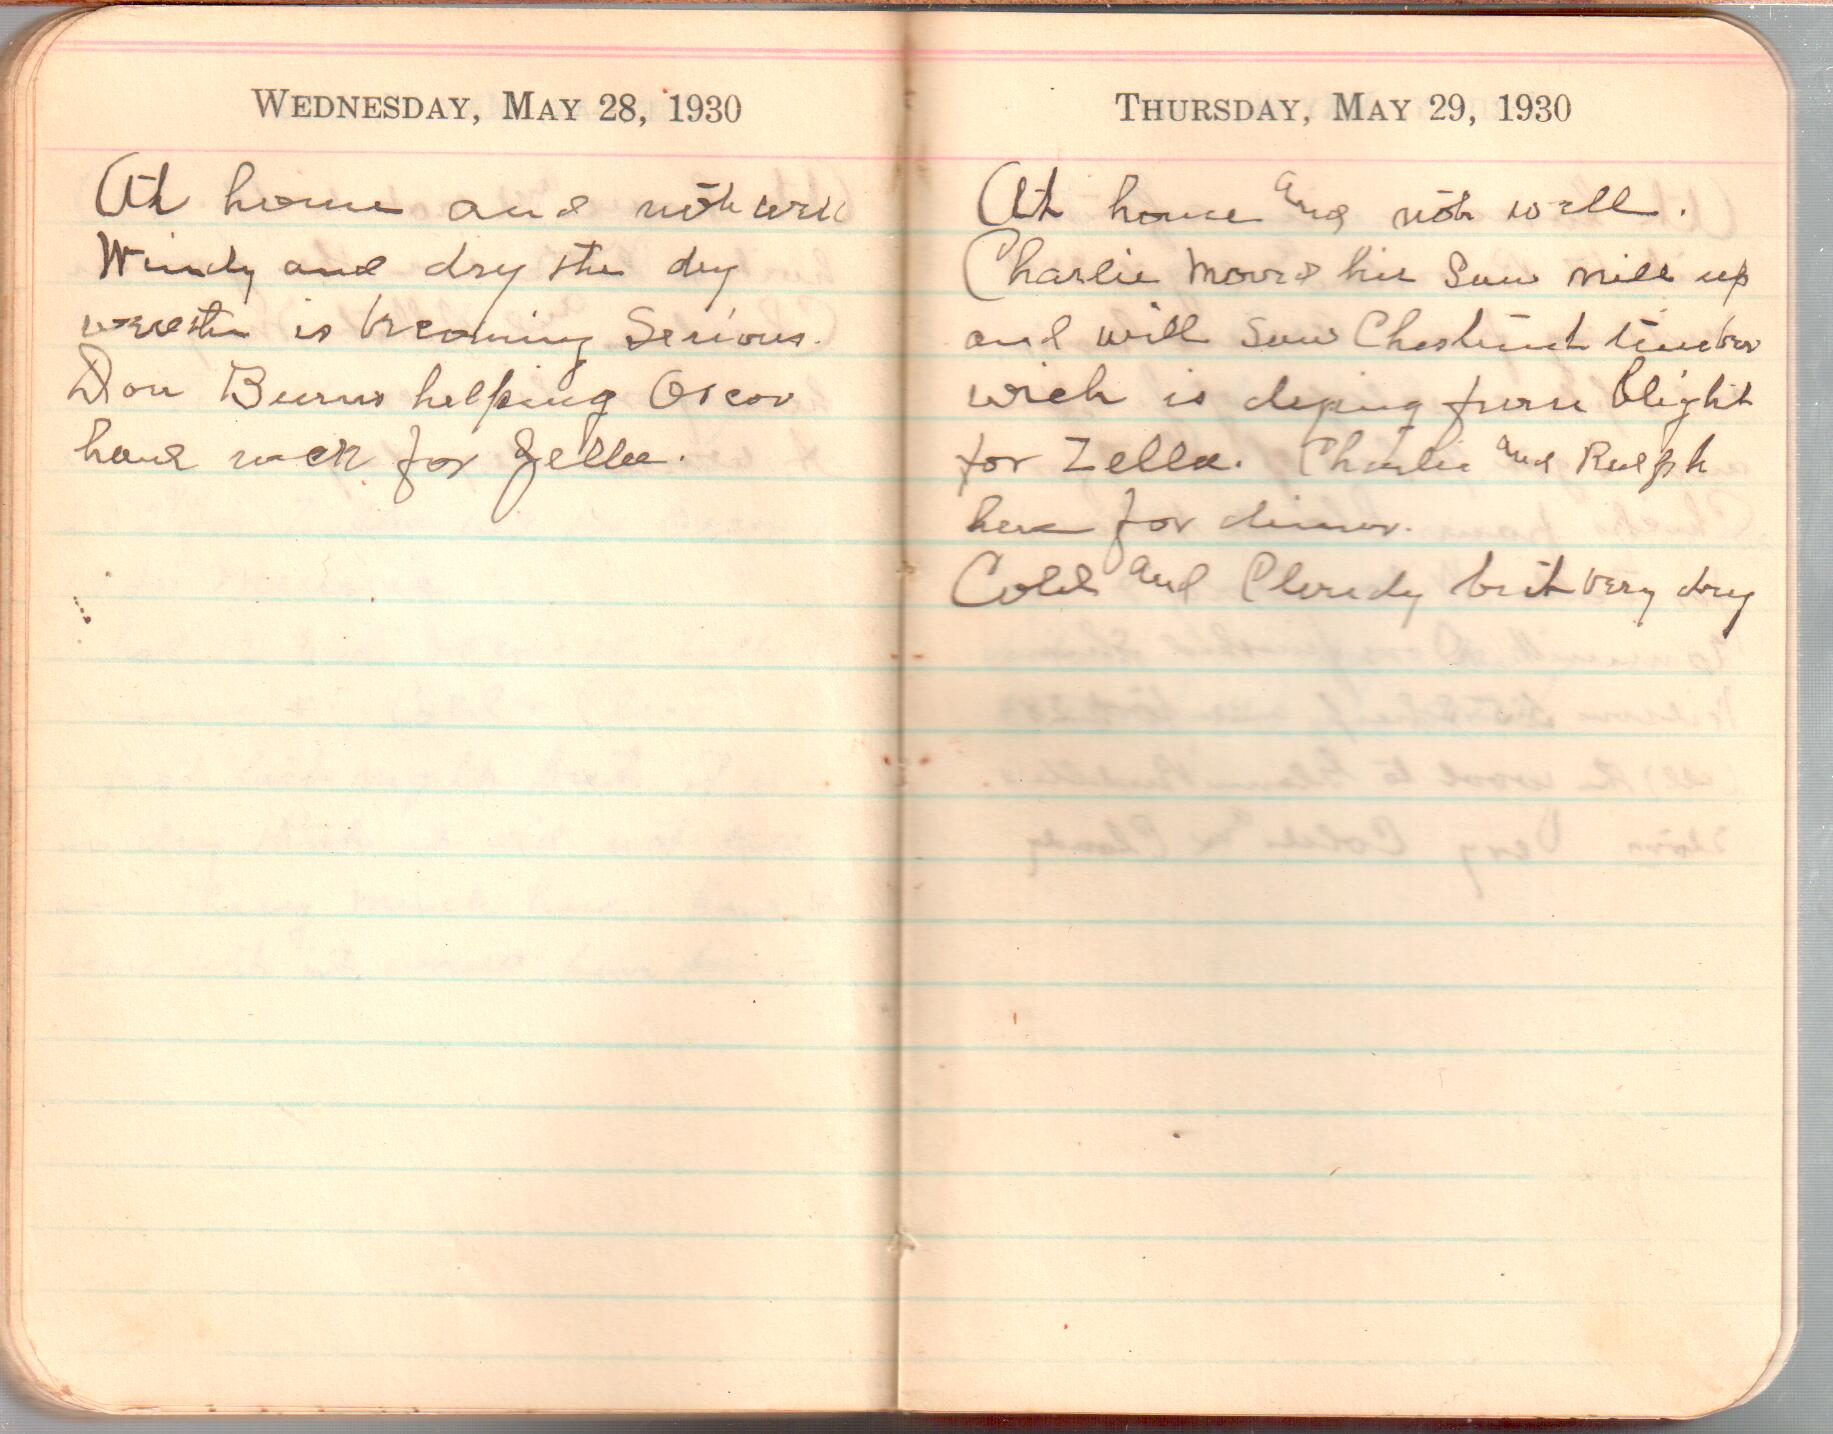 WEDNESDAY, MAY 28, 1930
At home and not well
Windy and dry the dry
is becoming Serious.
Don Burns helping Oscar
for Zella.
THURSDAY, MAY 29, 1930
At home and not well.
Charlie Moved his Saw mill up
and will Saw Chestnut timber
wich is from blight
for Zella. Charlie and Ralph
here for dinner.
Cold and Cloudy but very dry